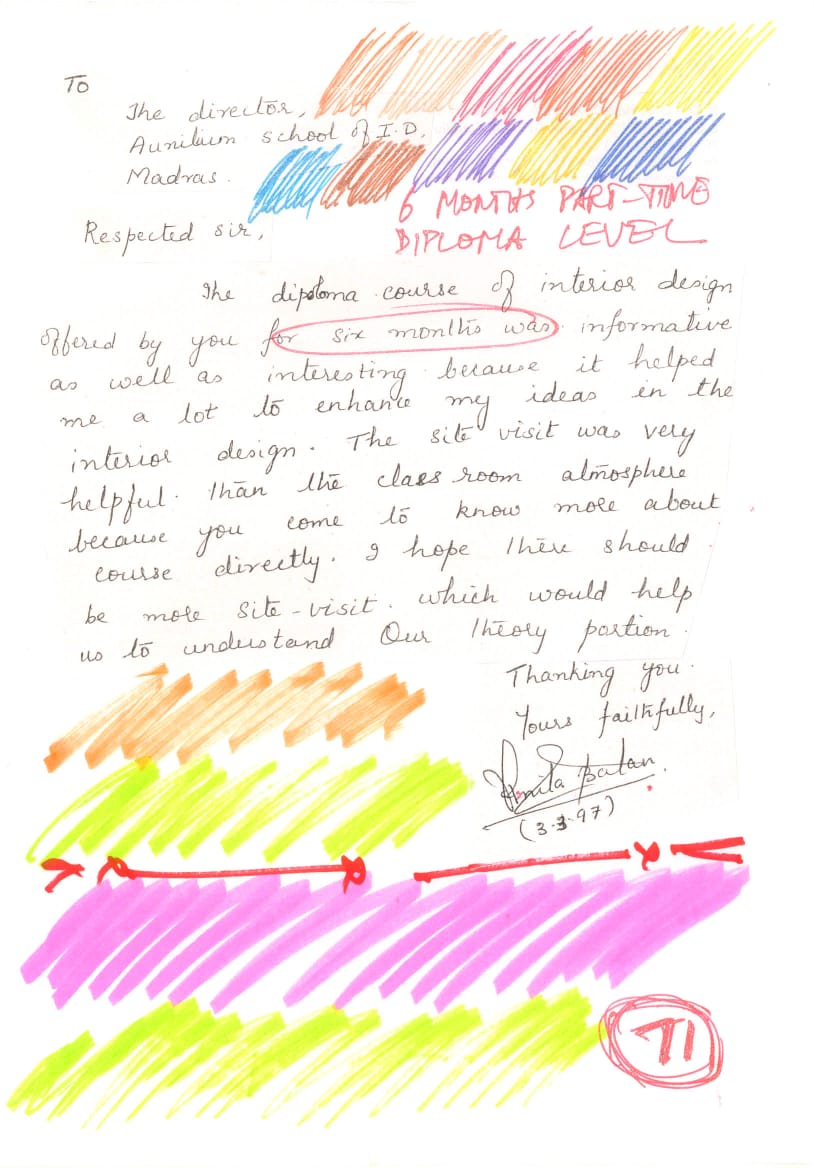 To
The director,
Aunilium school of I.D,
Madras.
6 MONTHS PART-TIME
DIPLOMA LEVEL
Respected sir,
The diploma course of interior design
offered by you for six months was informative
as well as interesting because it helped
me a lot to enhance my ideas in the
interior design. The site visit was very
helpful. Than the class room atmosphere
because you come to know more about
course directly. I hope there should
be more site-visit. which would help
us to understand Our theory portion.
Thanking you.
Yours faithfully,
(3.3.97)